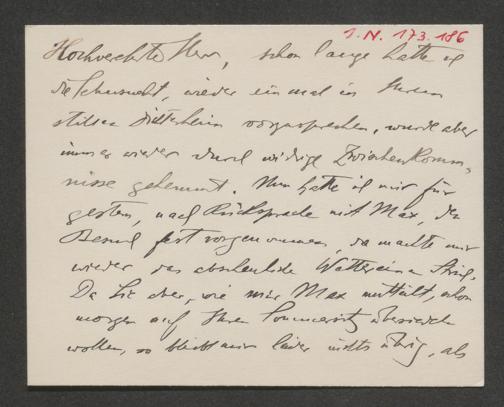 J. N. 173.186
Hochverehrter Herr, schon lange hatte ich
die Sehnsucht, wieder einmal in Ihrem
stillen vorzusprechen, wurde aber
immer wieder durch widrige Zwischenkomm-
nisse gehemmt. Nun hatte ich mir für
gestern, nach Rücksprache mit Max, den
Besuch fest vorgenommen, da machte mir
wieder das abscheuliche Wetter einen Strich.
Da Sie aber, wie mir Max mitteilt, schon
morgen auf Ihren Sommersitz übersiedeln
wollen, so bleibt mir leider nichts übrig, als